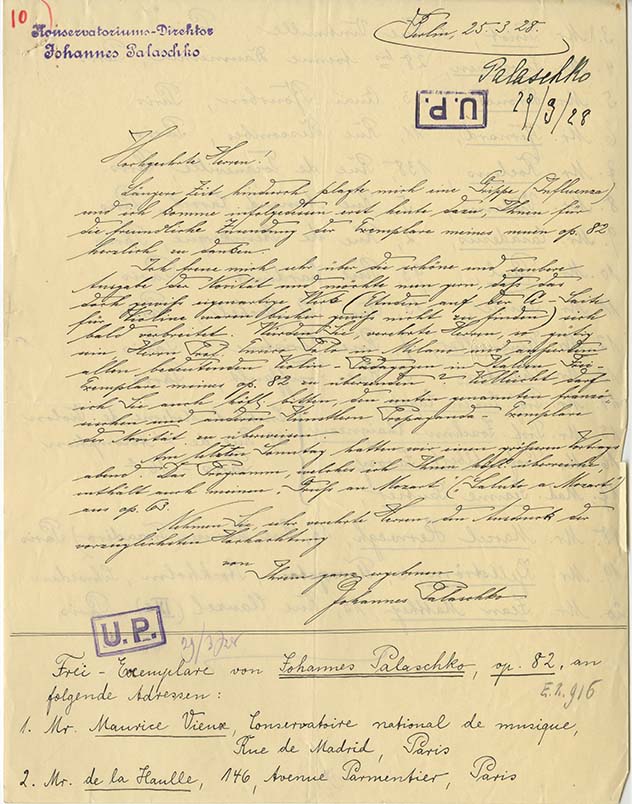 10)
Konservatoriums-Direktor
Johannes Palaschko
Berlin, 25.3.28.
Palaschko
29/3/28
U.P.
Hochgeehrte Herren!
Längere Zeit hindurch plagte mich eine Grippe (Influenza)
und ich komme infolgedessen erst heute dazu, Ihnen für
die freundliche Zusendung der Exemplare meines op. 82
herzlich zu danken.
Ich freue mich sehr über die schöne und saubere
Ausgabe der Novität und möchte nun gern, daß das
doch gewiß eigenartige Werk (Etuden auf der C-Saite
für Violine waren bisher gewiß nicht zu finden) sich
bald verbreitet. Würden Sie, verehrte Herren, so gütig
sein, Herrn Prof. Enrico Polo in Milano und außerdem
allen bedeutenden Violin-Pädagogen in Italien Frei-
Exemplare meines op. 82 zu übersenden? Vielleicht darf
ich Sie auch höfl. bitten, den unten genannten franzö-
sischen und anderen Künstlern Propaganda-Exemplare
der Novität zu überweisen.
Am letzten Sonntag hatten wir einen größeren Vortrags-
abend. Das Programm, welches ich Ihnen höfl. überreiche,
enthält auch meinen "Gruß an Mozart" ("Saluto a Mozart")
aus op. 63.
Nehmen Sie, sehr verehrte Herren, den Ausdruck der
vorzüglichsten Hochachtung
von
Ihrem ganz ergebenen
Johannes Palaschko
U.P.
29/3/28
Frei-Exemplare von Johannes Palaschko, op. 82, an
folgende Adressen:
E.1.916
1. Mr. Maurice Vieux, Conservatoire national de musique,
Rue de Madrid, Paris
2. Mr. de la Haulle, 146, Avenue Parmentier, Paris